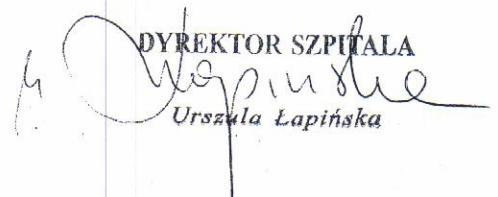 DYREKTOR SZPITALA
Urszula Łapińska